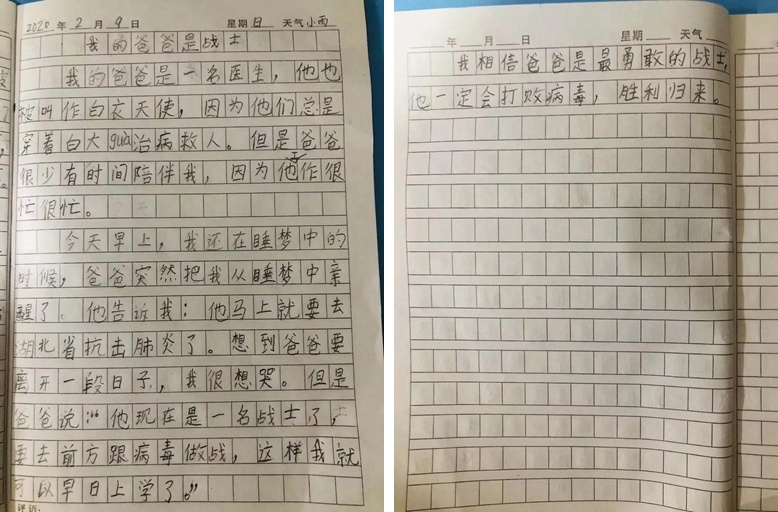 2020 年 2 月 9 日 星期日 天气 小雨
我的爸爸是战士
我的爸爸是一名医生，他也
被叫作白衣天使，因为他们总是
穿着白大gua治病救人。但是爸爸
很少有时间陪伴我，因为他工作很
忙很忙。
今天早上，我还在睡梦中的
时候，爸爸突然把我从睡梦中亲
醒了。他告诉我：他马上就要去
湖北省抗击肺炎了。想到爸爸要
离开一段日子，我很想哭。但是
爸爸说：“他现在是一名战士了，
要去前方跟病毒做战，这样我就
可以早日上学了。”
年 月 日 星期 天气
我相信爸爸是最勇敢的战士，
他一定会打败病毒，胜利归来。